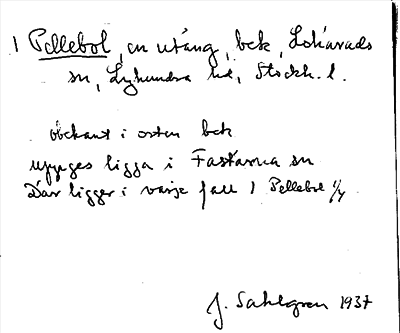 1 Pellebol, en utäng, bek, Lohärads
sn, Lyhundra hd, Stockh. l.
obekant i orten bek
uppges ligga i Fasterna sn
Där ligger i varje fall 1 Pellebol 1/4
J. Sahlgren 1937